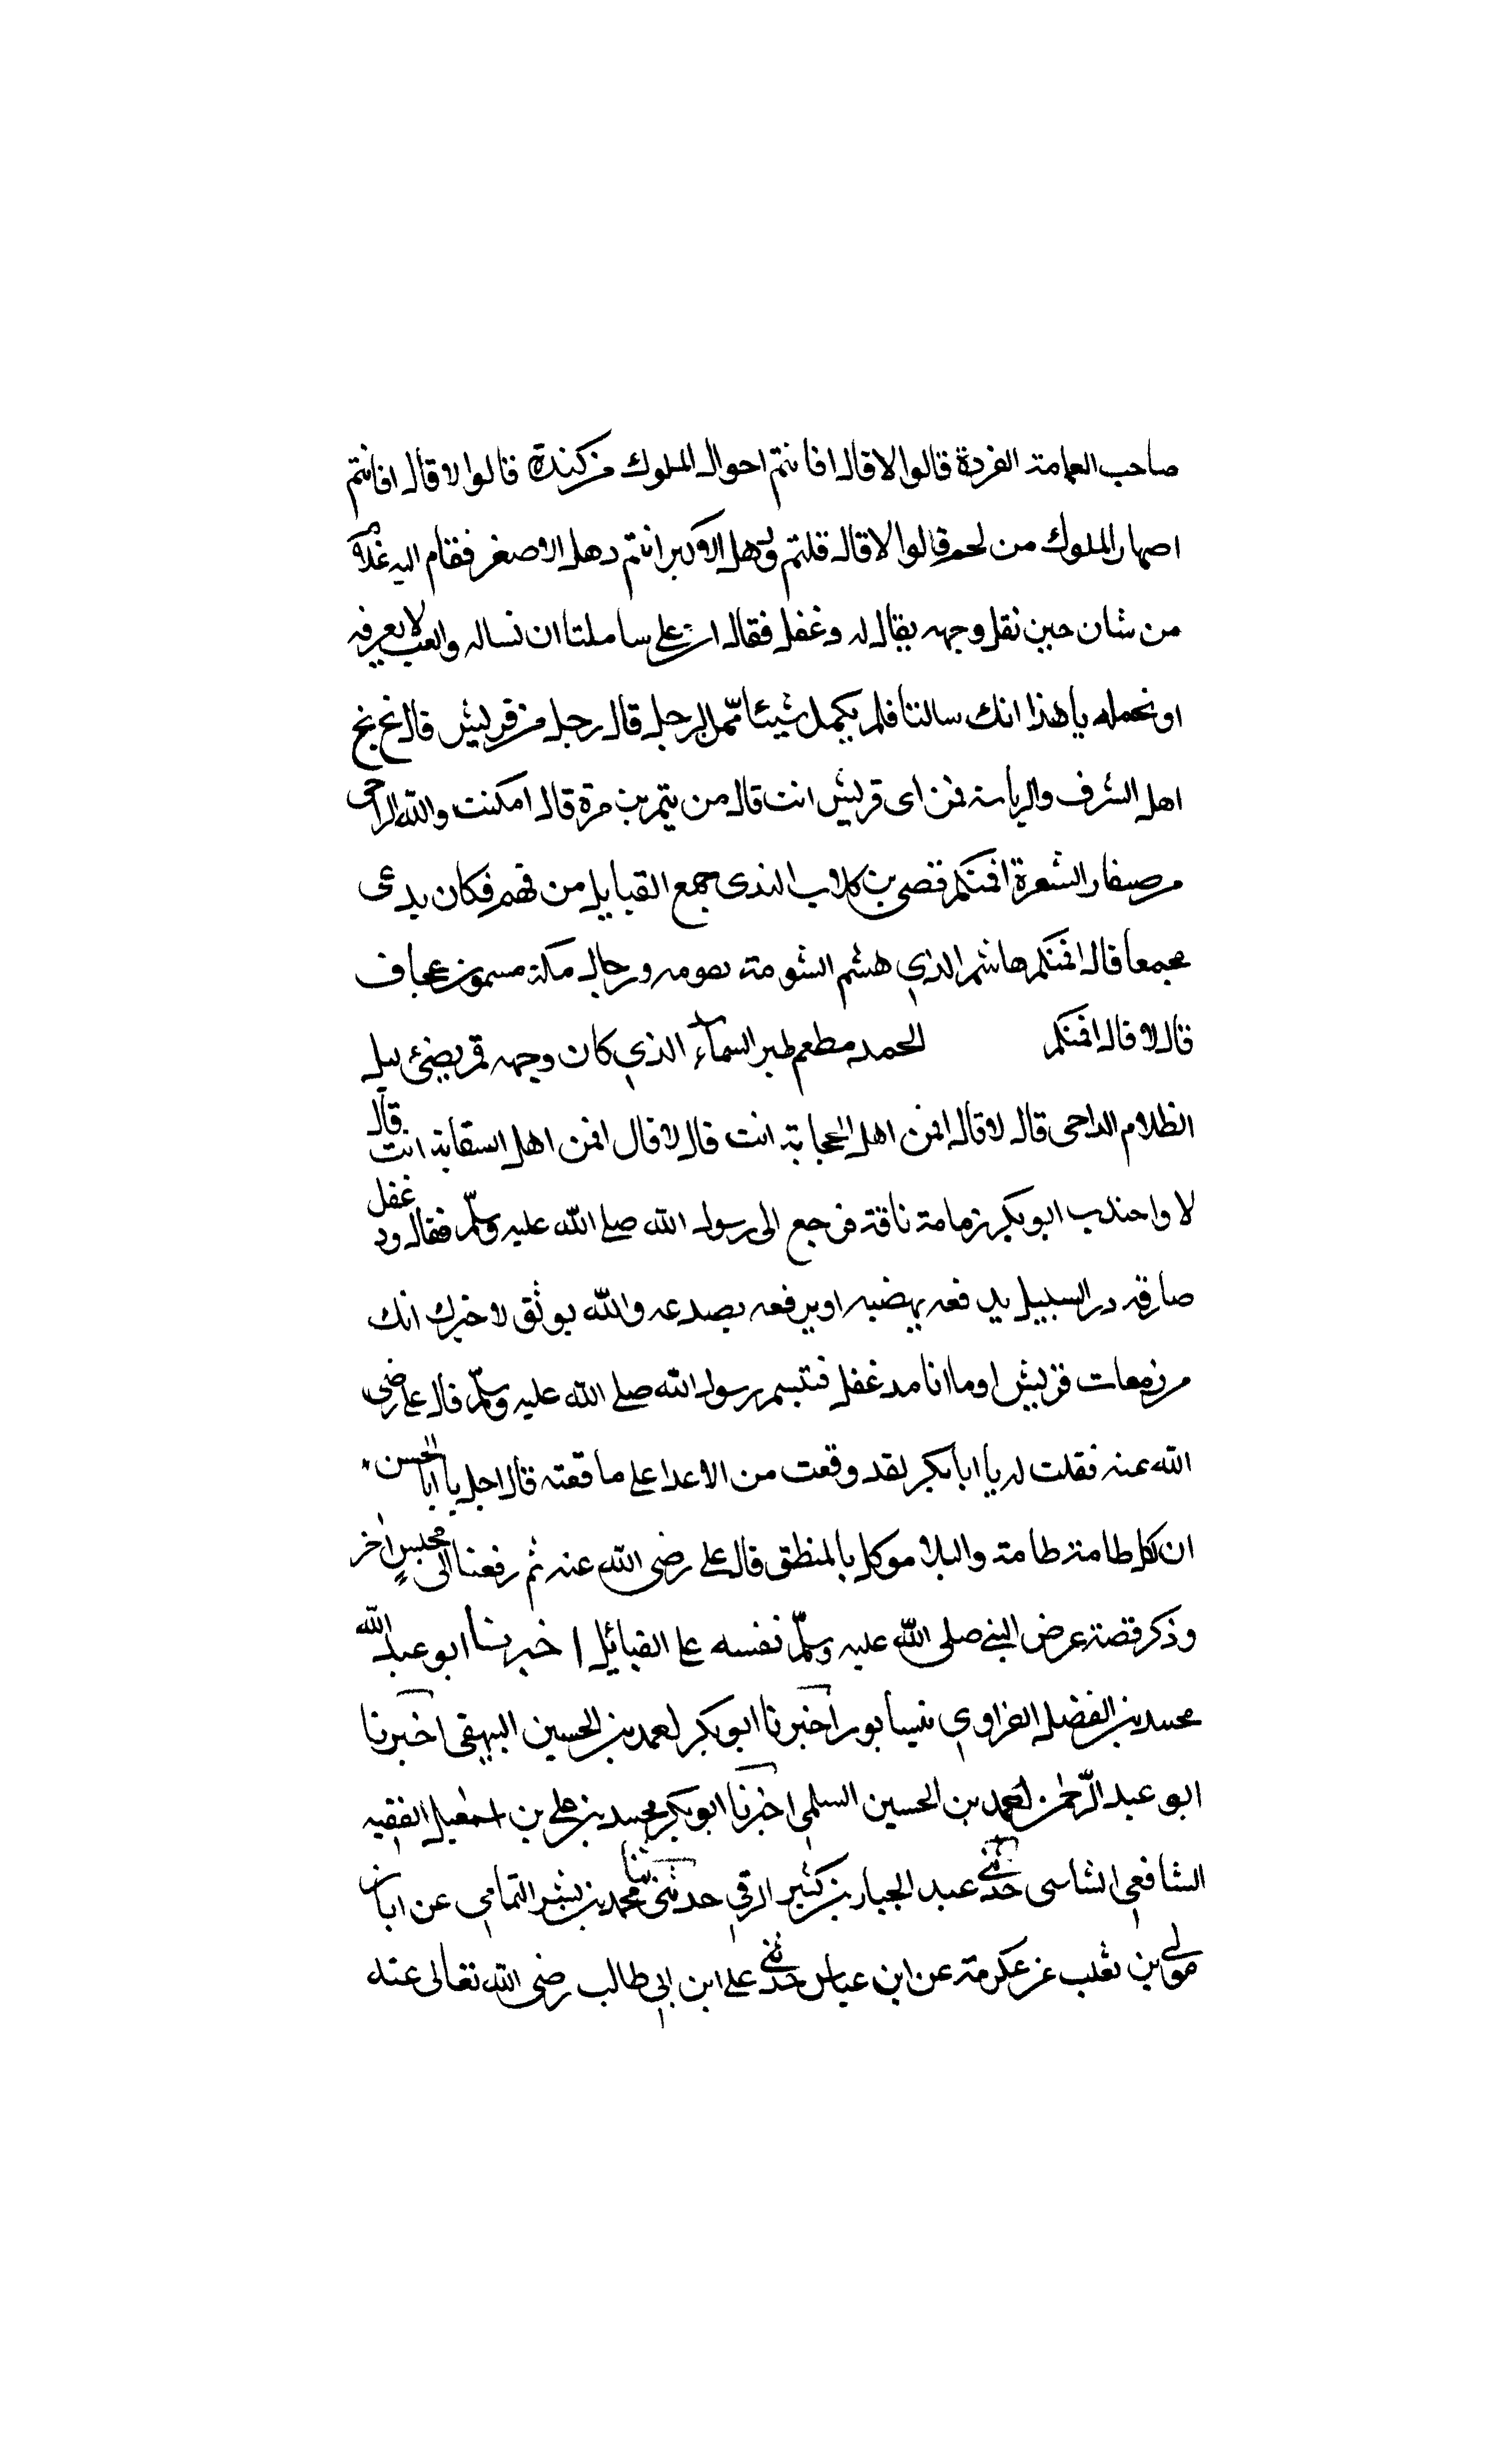 صاحب العمامة الفردة قالوا لا قال افانتم احوال الملوك من كندة قالوا لا قال افانتم
اصهار الملوك من لحم قالوا لا قال قلتم وذهل الاكبر انتم دهل الاصغر فقام اليه غلام
من شان حين نقل وجهه يقال له دغفل فقال ان على ساملنا ان نساله والعب لا يعرفه
او نحمله يا هذا انك سالتنا فلم يكمل شيئا ممن الرجل قال رجل من قريش قال بخ بخ
اهل الشرف والرياسة فمن اى قريش انت قال من تيم بن مرة قال امكنت والله الراحى
من صفار الشعرة افمنكم قصى بن كلاب الذى جمع القبايل من فهم فكان يدعى
مجمعا قال افمنكم هاشم الذي هشم الشومة بقومه ورجال مكة مسمون عجاف
قال لا قال افمنكم الحمد مطعم طير السماء الذي كان وجهه قمر يضئ ليل
الظلام الداجى قال لا قال افمن اهل الحجابة انت قال لا قال افمن اهل السقاية انت قال
لا واحذب ابو بكر زمامة ناقة فرجع الى رسول الله صلى الله عليه وسلم فقال دغفل
صارقه در السبيل يد فعه يهضبه او يرفعه بصدعه والله بوثق لاخبرك انك
من زمعات قريش او ما انا مدغفل فتبسم رسول الله صلى الله عليه وسلم قال على رضى
الله عنه فقلت له يا ابا بكر لقد وقعت من الاعدا على ماقعته قال اجل يا ابا الحسن
ان لكل طامة طامة والبلا موكل بالمنطق قال على رضى الله عنه ثم رفعنا الى مجلس اخر
وذكر قصة عرض النبي صلى الله عليه وسلم نفسه على القبائيل اخبرنا ابو عبد الله
محمد بن الفضل الفراوي بنيسابور اخبرنا ابو بكر احمد بن الحسين البيهقى اخبرنا
ابو عبد الرحمن احمد بن الحسين السلمى اخبرنا ابو بكر محمد بن على بن اسمعيل الفقيه
الشافعى الشاسى حدثني عبد الجبار بن كثير الرقي حدثنى محمد بن بشر التمامى عن ابان
مولى بن تغلب عن عكرمة عن ابن عباس حدثني على ابن ابى طالب رضى الله تعالى عنه